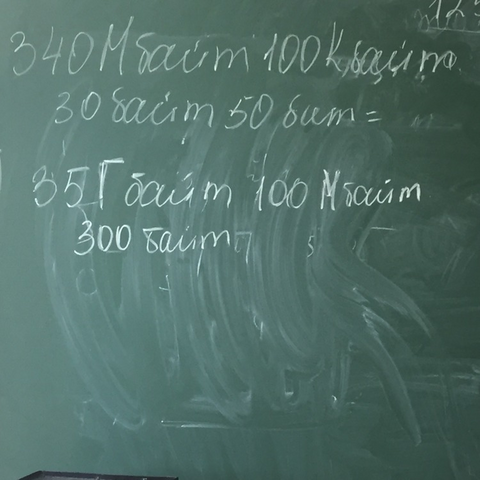 340 Мбайт 100 Кбайт
30 байт 50 бит =
35 Гбайт 100 Мбайт
300 байт